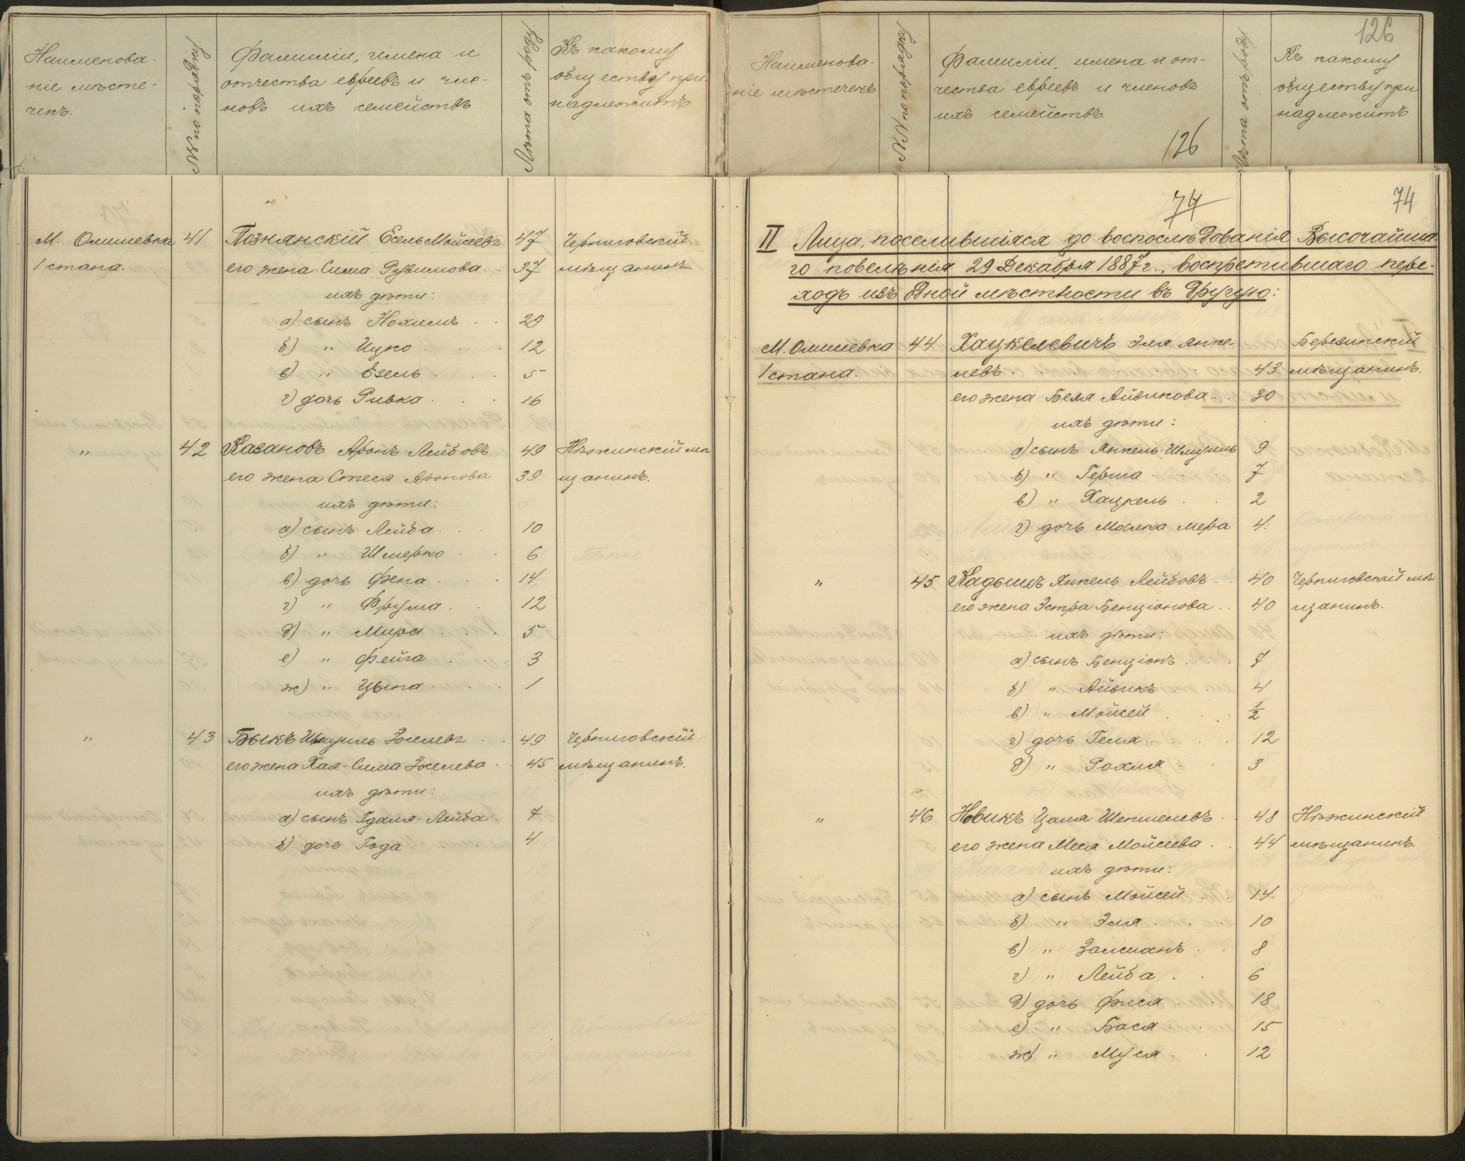 Наименова-
ніе мѣсте-
чекъ.
№№ по порядку
Фамиліи, имена и
отчества евреевъ и чле-
новъ ихъ семействъ
Лѣта отъ роду
Къ какому
обществу при
надлежитъ
М. Олишевка 41 Познянскій Есель Мойсеевъ 47 Черниговскій
1 стана. его жена Сима Рувимова 37 мѣщанинъ
ихъ дѣти:
а) сынъ Нохимъ 20
б) " Ицко 12
в) " Езель 5
г) дочь Ривка 16
" 42 Казановъ Аронъ Лейбовъ 49 Нѣжинскій мѣ
его жена Стеся Аронова 39 щанинъ.
ихъ дѣти:
а) сынъ Лейба 10
б) " Шмерко 6
в) дочь Фена 14
г) " Фрума 12
д) " Мира 5
е) " Фейга 3
ж) " Цыпа 1
" 43 Быкъ Шмуиль Іоселевъ 49 Черниговскій
его жена Хая-Сима Іоселева 45 мѣщанинъ.
ихъ дѣти:
а) сынъ Гдаля-Лейба 7
б) дочь Года 4
126
Наименова-
ніе мѣстечекъ
№№ по порядку
Фамиліи, имена и от-
чества евреевъ и членовъ
ихъ семействъ.
126
Лѣта отъ роду
Къ какому
обществу при
надлежитъ
74 74
II Лица, поселившіяся до воспослѣдованія Высочайша
го повелѣнія 29 Декабря 1887 г., воспретившаго пере-
ходъ изъ одной мѣстности въ другую:
М. Олишевка 44 Хацкелевичъ Эля Янке- Березинскій
1 стана. левъ. 43 мѣщанинъ.
его жена Бейля Айзикова 30
ихъ дѣти:
а) сынъ Янкель-Шмуиль 9
б) " Герша 7
в) " Хацкель 2
г) дочь Малка Мера 4
" 45 Кадышъ Янкель Лейбовъ 40 Черниговскій мѣ
его жена Эстра Бенціонова 40 щанинъ.
ихъ дѣти:
а) сынъ Бенціонъ 7
б) " Айзикъ 4
в) " Мойсей 1/2
г) дочь Геля 12
д) " Рохля 3
" 46 Новикъ Цаля Шепшелевъ 48 Нѣжинскій
его жена Меся Мойсеева 44 мѣщанинъ
ихъ дѣти:
а) сынъ Мойсей 14
б) " Эля 10
в) " Залманъ 8
г) " Лейба 6
д) дочь Фися 18
е) " Бася 15
ж) " Муся 12